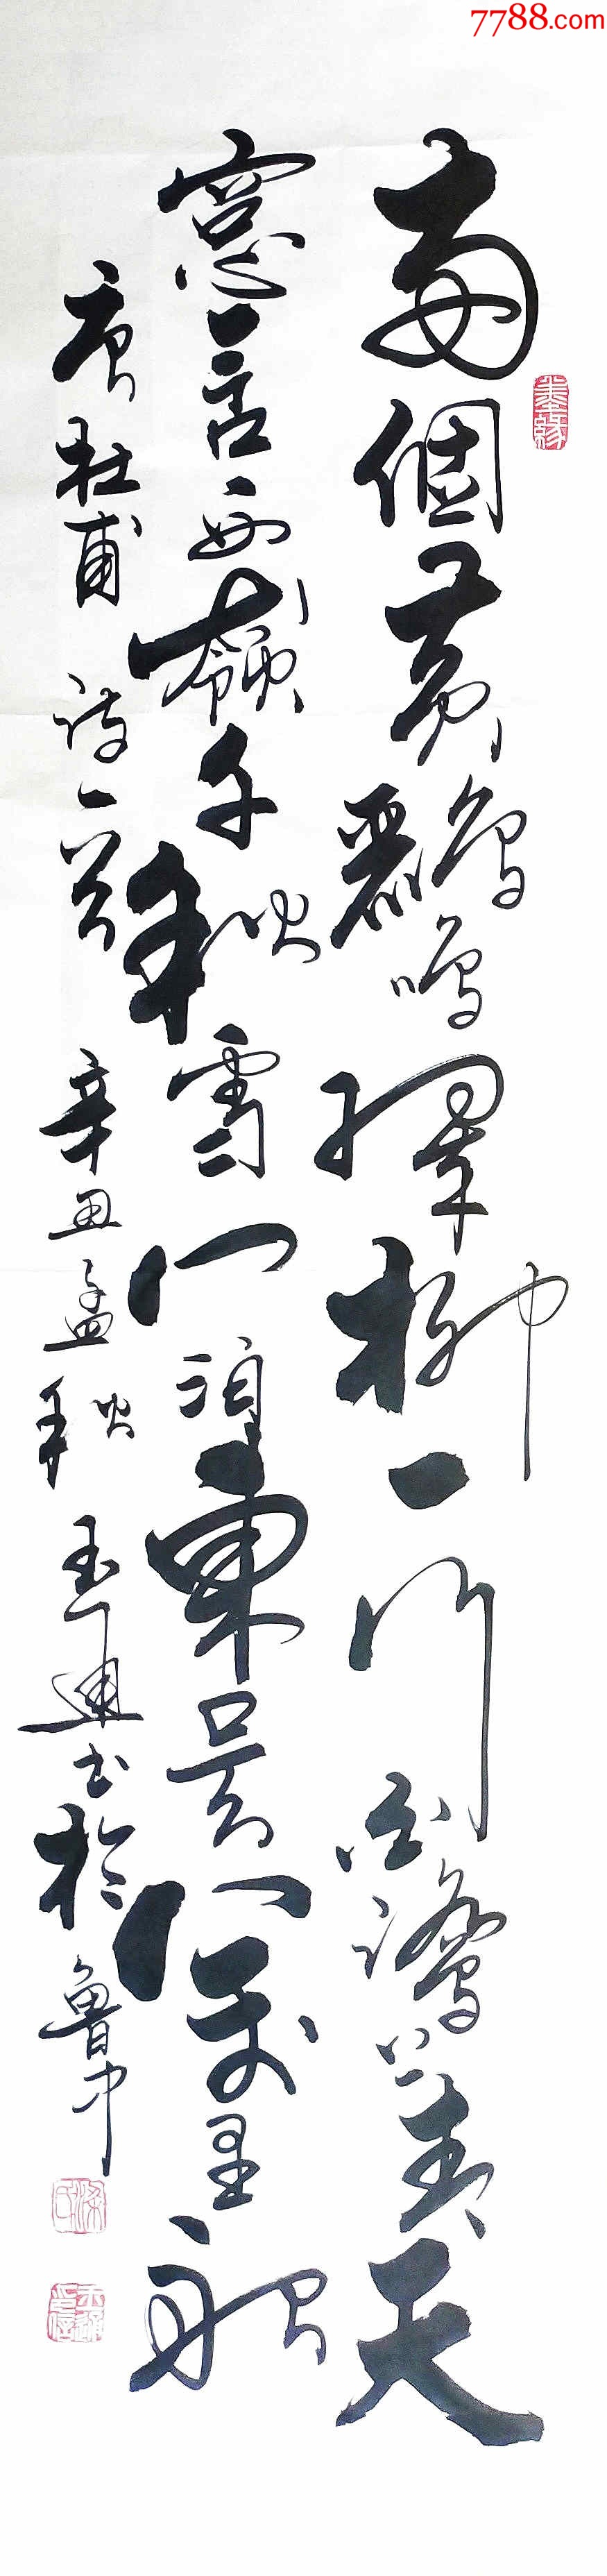 7788.com
两個黄鸝鳴翠柳一行白鷺上青天
窓含西嶺千秋雪門泊東吴萬里船
唐杜甫詩一首 辛丑孟秋 玉通书於魯中
墨缘
玉通